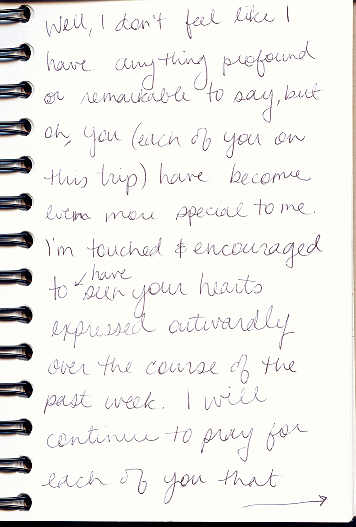 Well, I don't feel like I
have anything profound
or remarkable to say, but
oh, you (each of you on
this trip) have become
even more special to me.
I'm touched & encouraged
to have seen your hearts
expressed outwardly
over the course of the
past week. I will
continue to pray for
each of you that